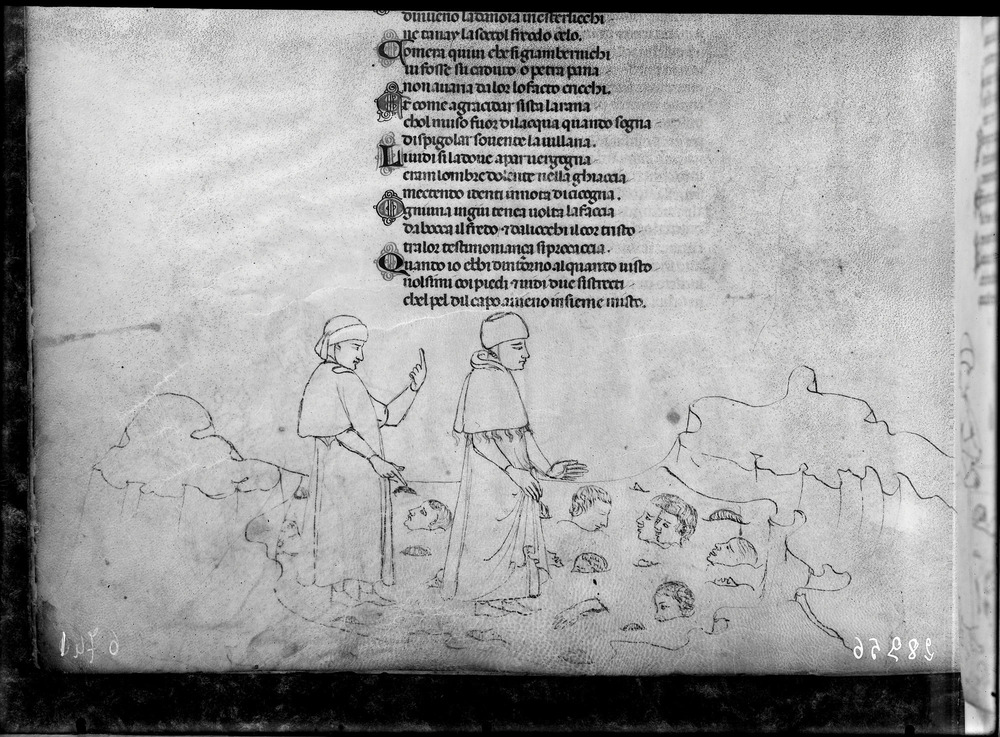 diuieno la danoia in osterlicchi
ne tanay la sotol fredo celo.
Comera quiui che si giambernichi
ui fosse su caduto. o petra pana
non auaria da lor lo facto cricchi.
Et come agracidar si sta la rana
chol muso fuor dilacqua quanto sogna
dispigolar souente la uillana.
Liuidi fi ladoue apar uergogna
eram lombre dolente nella ghiaccia
mectendo identi innota dicicogna.
Ogniuna ingiu tenea uolta la faccia
da bocca il fredo ⁊ dalicchi il cor tristo
tralor testimonianza si procaccia.
Quando io ebbi dintorno alquanto uisto
uolsimi coi piedi ⁊ uidi due si strecti
chel pel dil capo insieme misto.